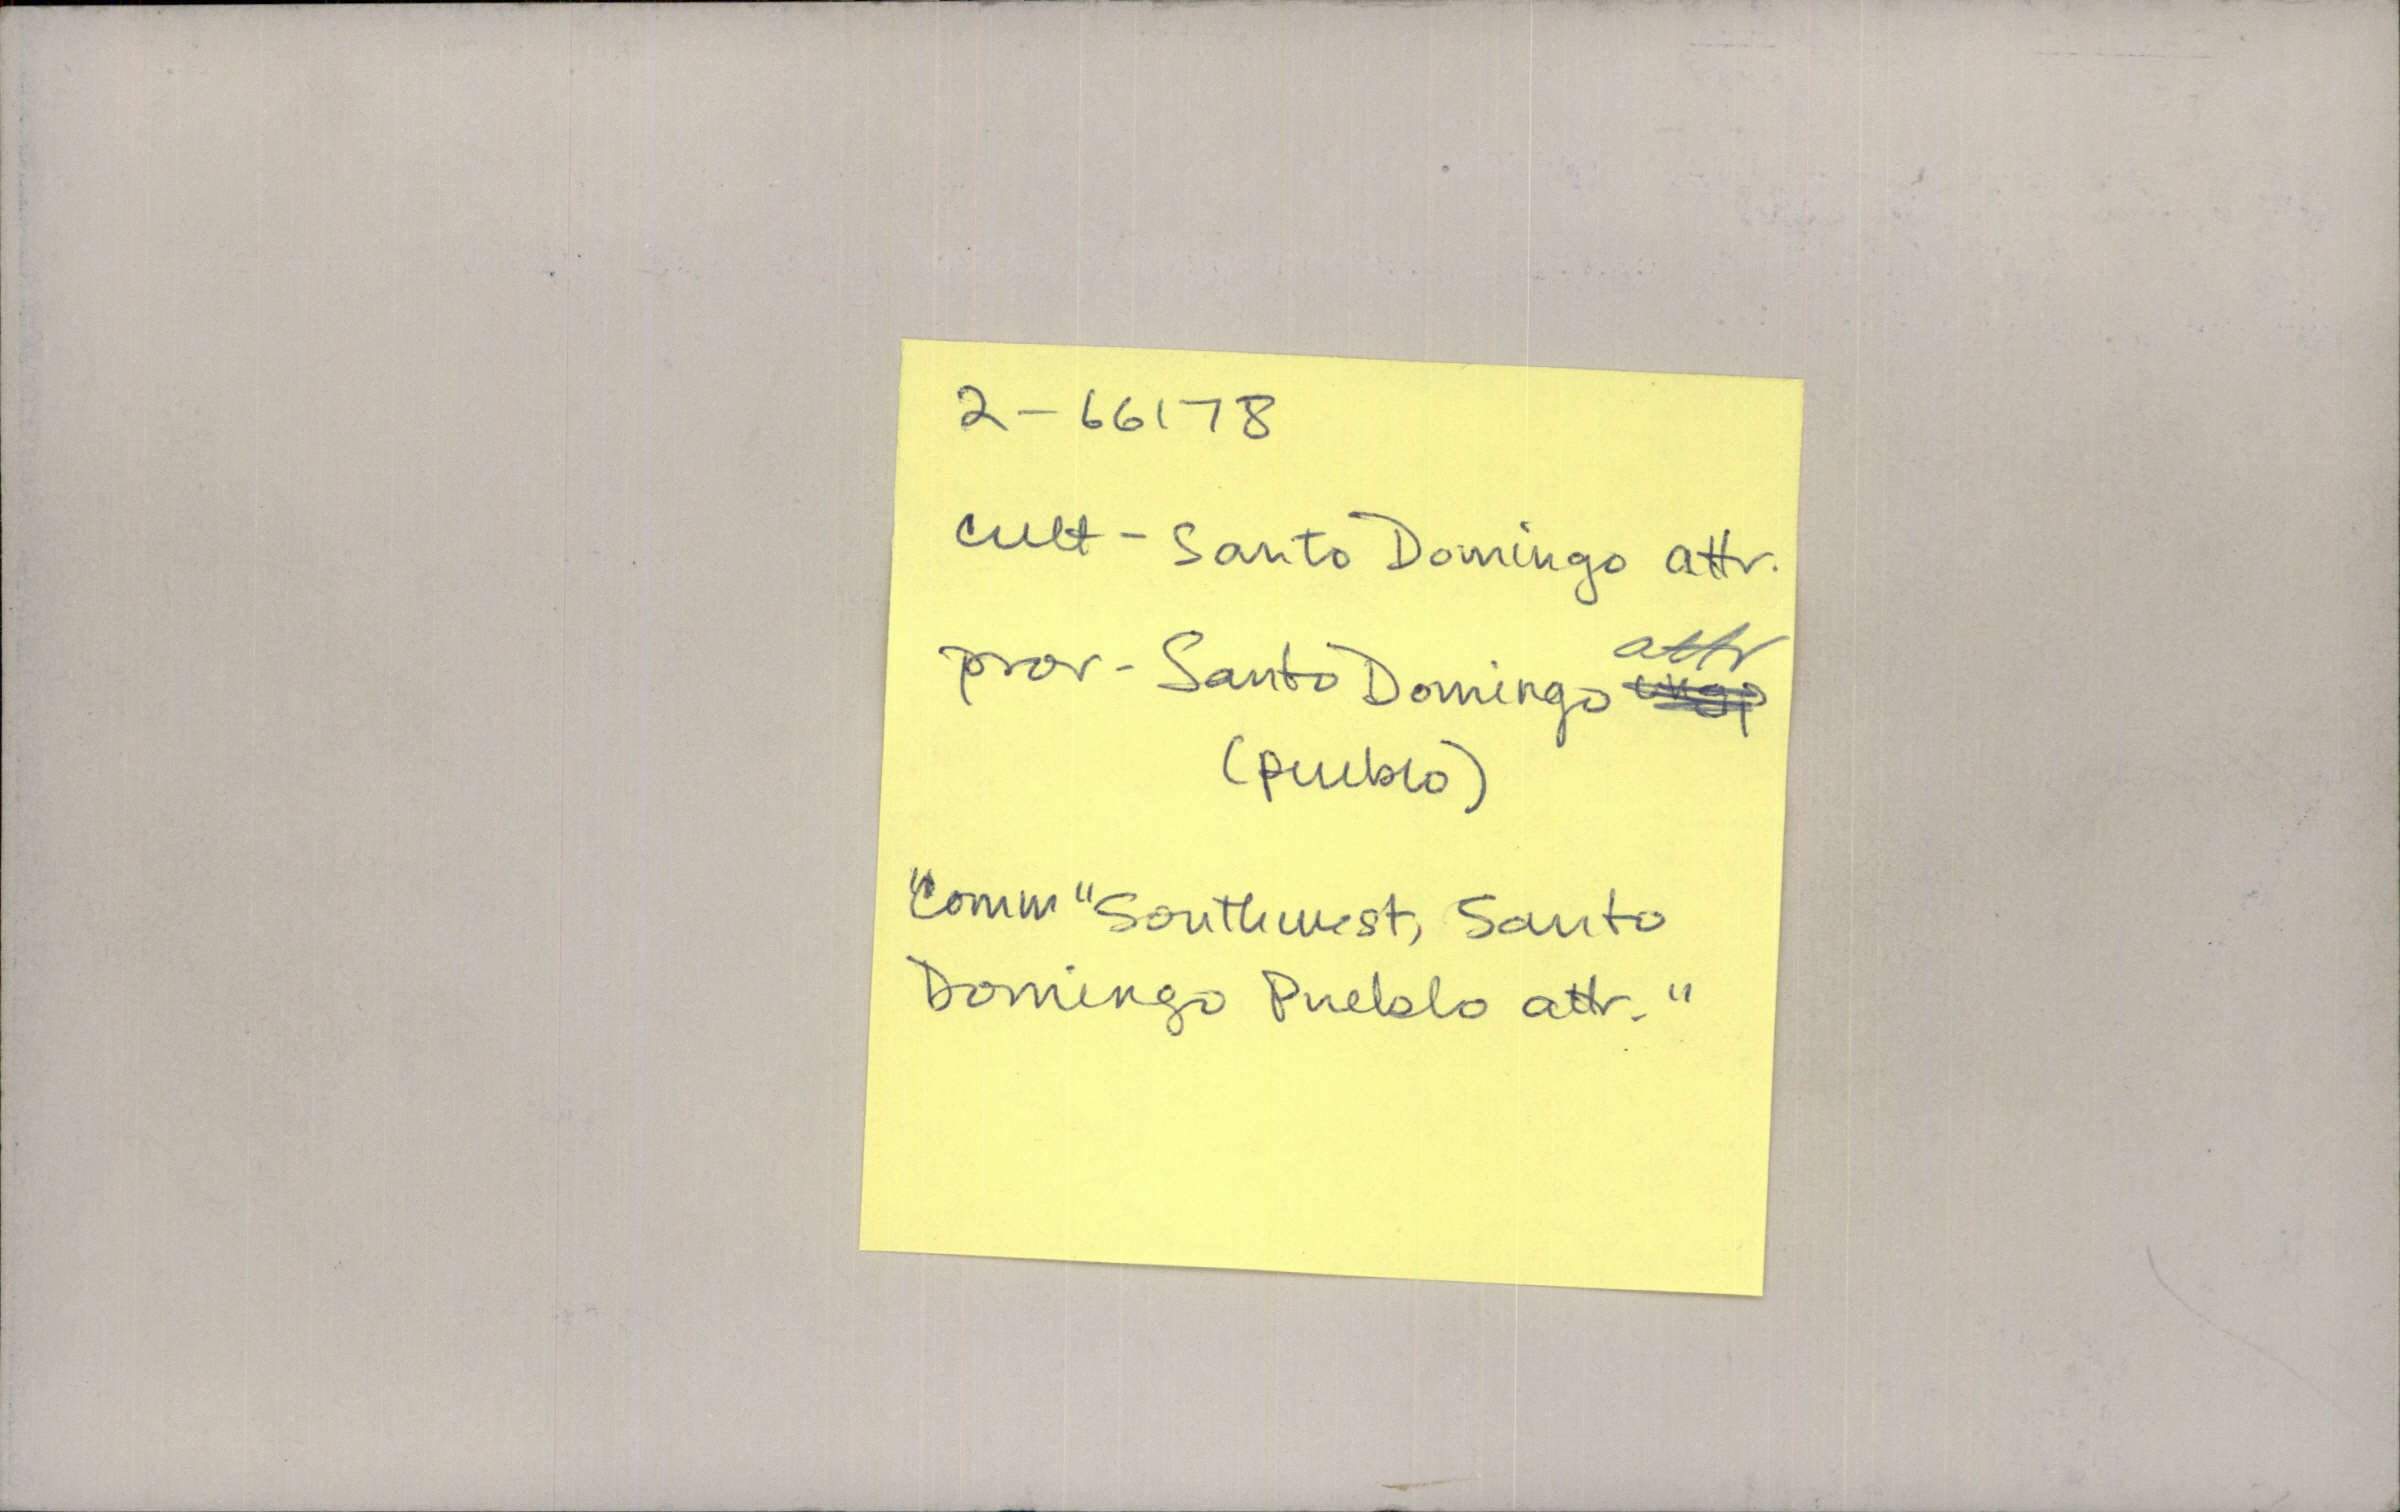 2-66178
cult - Santo Domingo attr.
prov - Santo Domingo attr
(pueblo)
"Comm" Southwest, Santo
Domingo Pueblo attr."